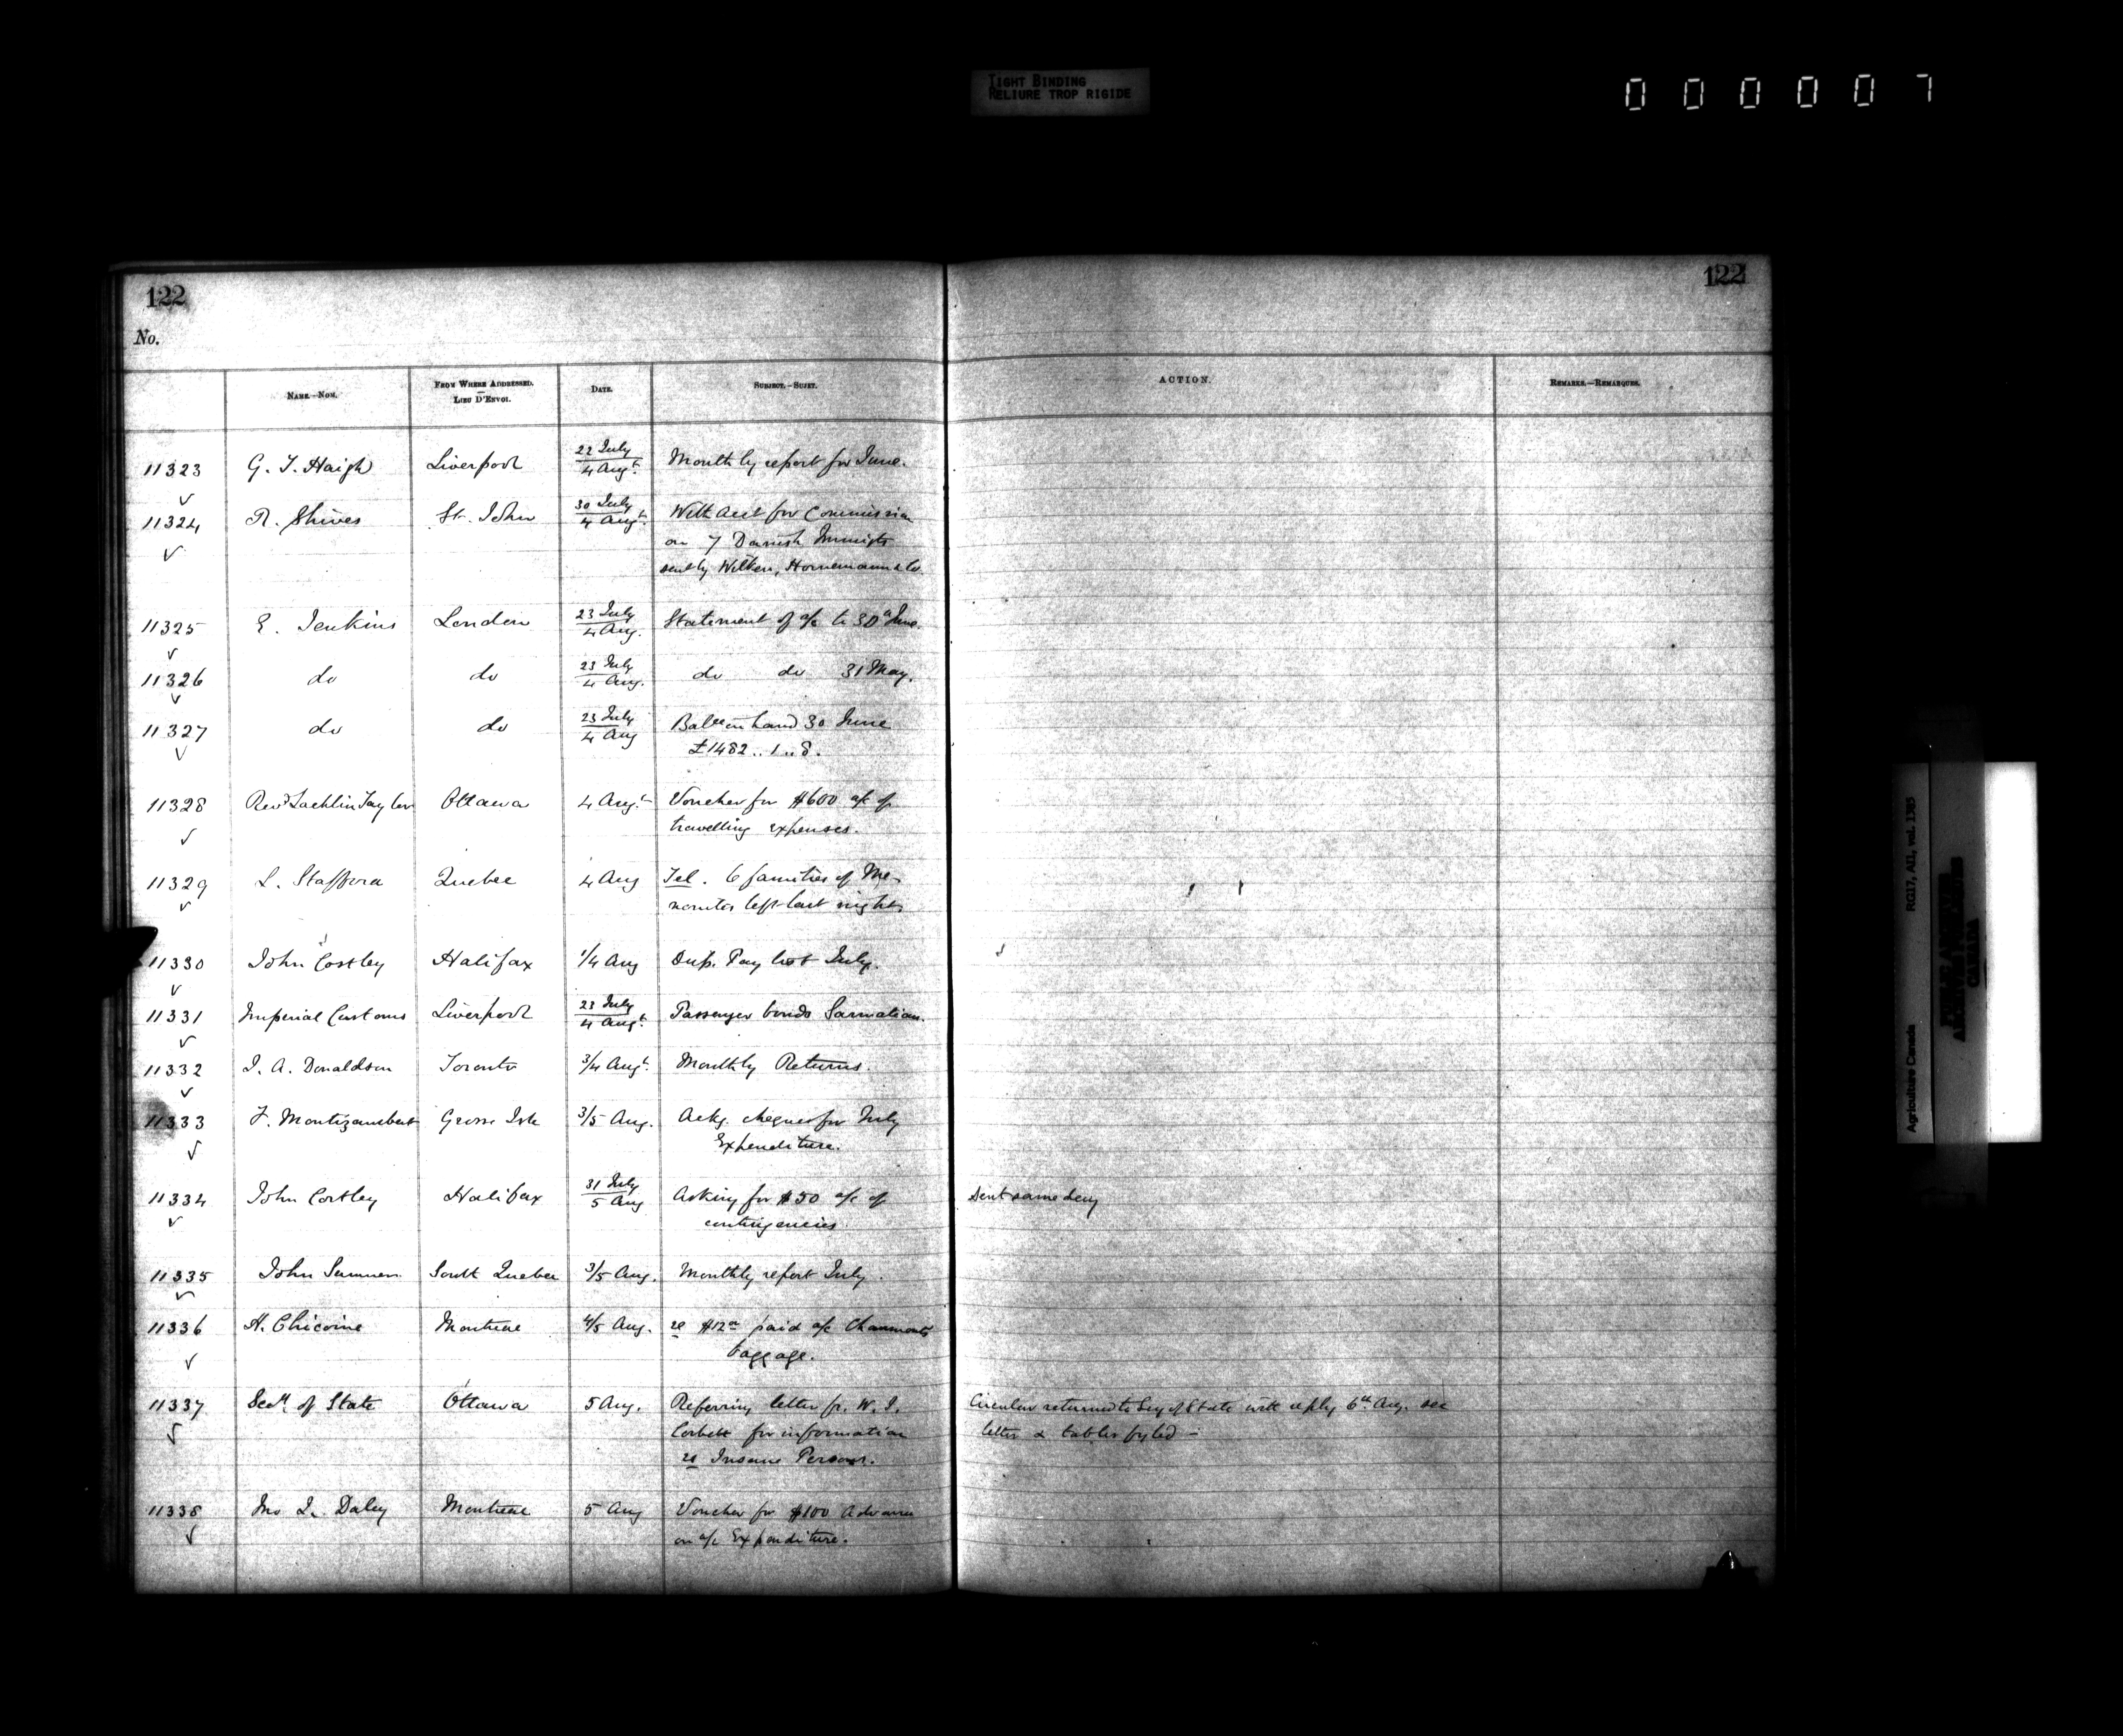 TIGHT BINDING
RELIURE TROP RIGIDE
000007
122 122
No.
NAME.—NOM. FROM WHERE ADDRESSED. — LIEU D'ENVOI. DATE. SUBJECT.—SUJET. ACTION. REMARKS.—REMARQUES.
11323 G. T. Haigh Liverpool 22 July / 4 Augt. Monthly report for June.
11324 R. Shives St. John 30 July / 4 Augt. With acct for Commission
on 7 Danish Immigts
sent by Wilken, Hornemann & Co.
11325 E. Jenkins London 23 July / 4 Aug. Statement of a/c to 30th June.
11326 do do 23 July / 4 Aug. do do 31 May.
11327 do do 23 July / 4 Aug Balce on hand 30 June
£1482..1..8.
11328 Revd Lachlin Taylor Ottawa 4 Augt Voucher for $600 a/c of
travelling expenses.
11329 L. Stafford Quebec 4 Aug Tel. 6 families of Me-
nonites left last night
11330 John Costley Halifax 1/4 Aug Dup. Pay list July.
11331 Imperial Customs Liverpool 23 July / 4 Augt. Passenger bonds Sarmatian.
11332 J. A. Donaldson Toronto 3/4 Augt. Monthly Returns.
11333 F. Montizambert Grosse Isle 3/5 Aug. Ackg. cheques for July
Expenditure.
11334 John Costley Halifax 31 July / 5 Aug Asking for $50 a/c of Sent same day
contingencies
11335 John Sumner South Quebec 3/5 Aug. Monthly report July.
11336 H. Chicoine Montreal 4/5 Aug. re $12 paid a/c Chaumonts
baggage.
11337 Secy. of State Ottawa 5 Aug. Referring letter fr. W. J. Circular returned to Secy of State with reply 6th Aug. see
Corbett for information letter & tables fyled –
re Insane Persons.
11338 Jno J. Daley Montreal 5 Aug Voucher for $100 Advance
on a/c Expenditure.
Agriculture Canada RG17, AII, vol. 1385
PUBLIC ARCHIVES
CANADA